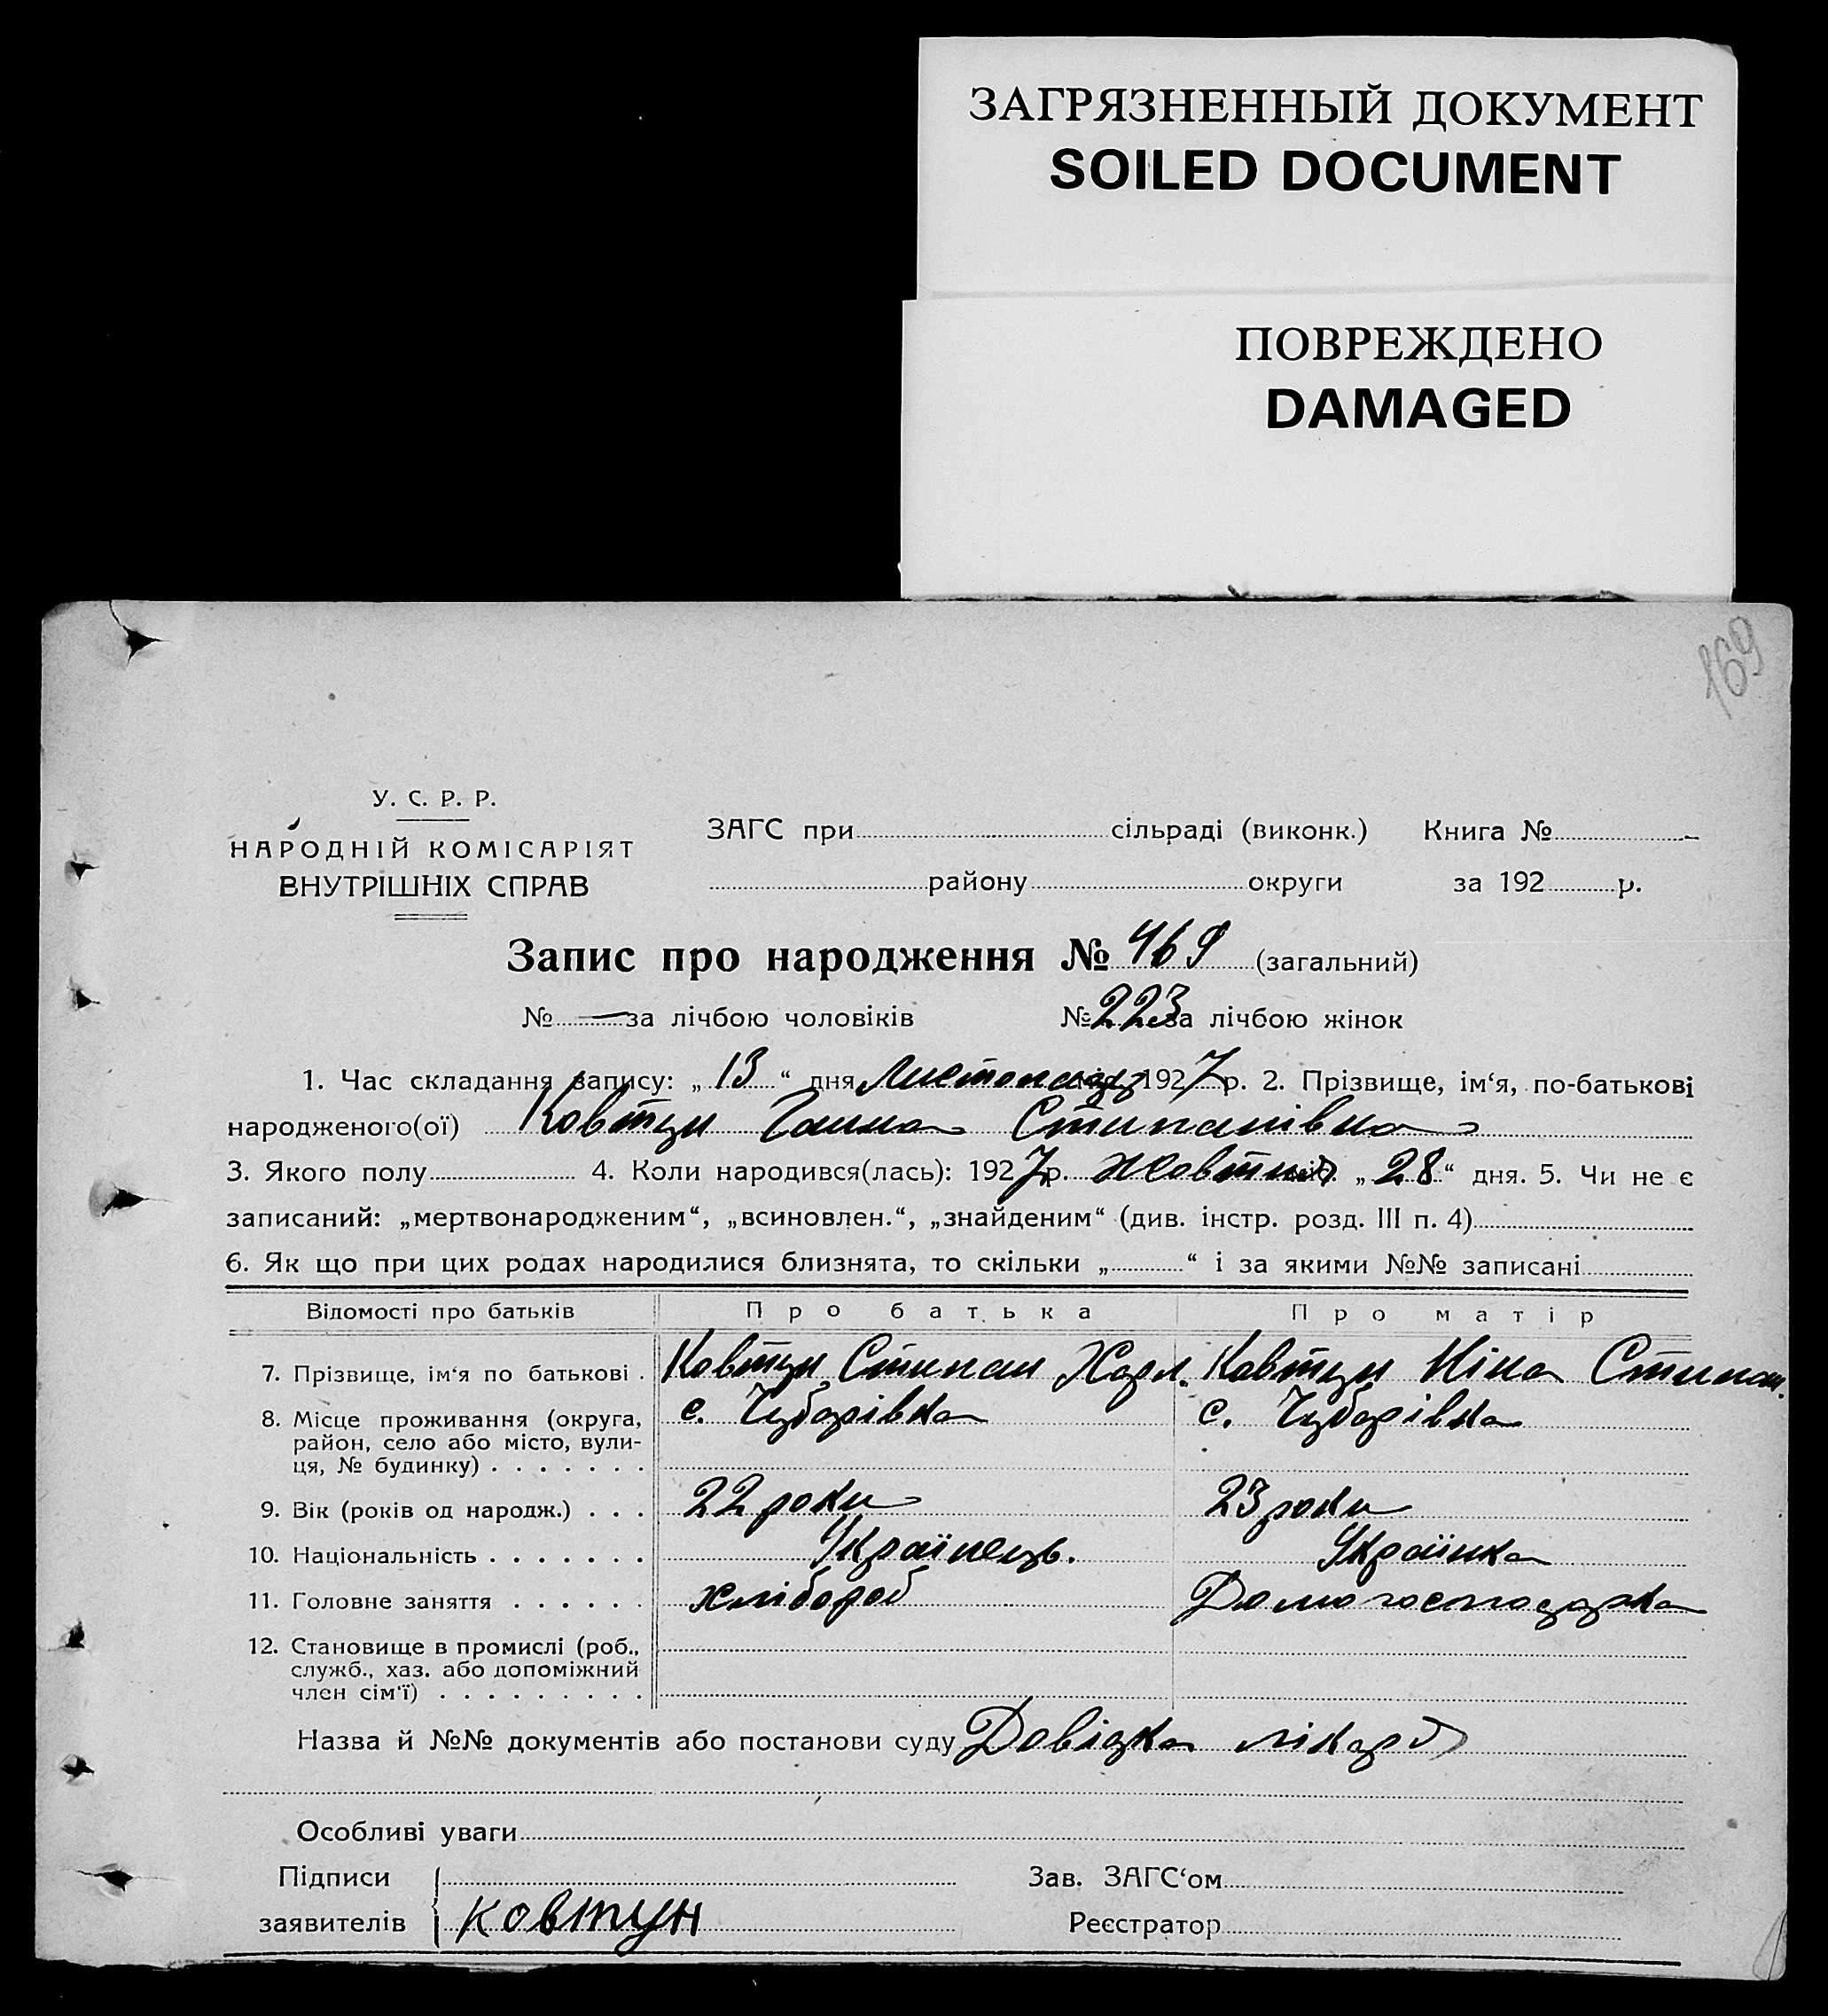 ЗАГРЯЗНЕННЫЙ ДОКУМЕНТ
SOILED DOCUMENT
ПОВРЕЖДЕНО
DAMAGED
169
У. С. Р. Р.
НАРОДНІЙ КОМІСАРІЯТ
ВНУТРІШНІХ СПРАВ
ЗАГС при сільраді (виконк.) Книга №
району округи за 192 р.
Запис про народження № 469 (загальний)
№ — за лічбою чоловіків № 223 за лічбою жінок
1. Час складання запису: „ 13 “ дня Листопада 1927 р. 2. Прізвище, ім‘я, по-батькові
народженого(ої) Ковтун Ганна Стипанівна
3. Якого полу 4. Коли народився(лась): 1927 р. Жовтня міс. „ 28 “ дня. 5. Чи не є
записаний: „мертвонародженим“, „всиновлен.“, „знайденим“ (див. інстр. розд. III п. 4)
6. Як що при цих родах народилися близнята, то скільки „ “ і за якими №№ записані
Відомості про батьків Про батька Про матір
7. Прізвище, ім‘я по батькові . Ковтун Стипан Харл. Ковтун Ніна Стипан.
8. Місце проживання (округа, с. Чубарівка с. Чубарівка
район, село або місто, вули-
ця, № будинку) . . . . . . .
9. Вік (років од народж.) . . . 22 роки 23 роки
10. Національність . . . . . . . Українець. Українка
11. Головне заняття . . . . . . хлібороб Домогосподарка
12. Становище в промислі (роб.,
служб., хаз. або допоміжний
член сім‘ї) . . . . . . . . .
Назва й №№ документів або постанови суду Довідка лікаря
Особливі уваги
Підписи Зав. ЗАГС‘ом
заявителів Ковтун Реєстратор